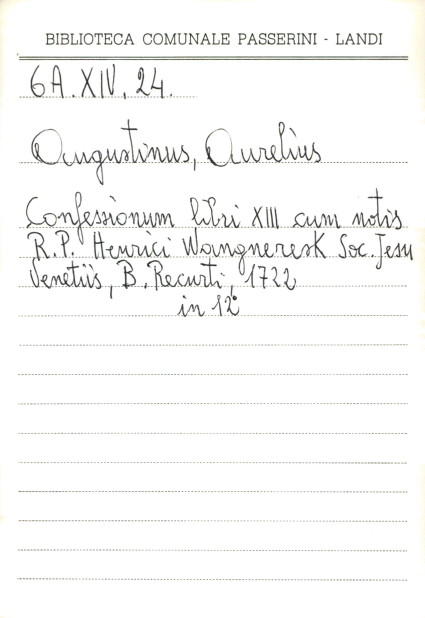 BIBLIOTECA COMUNALE PASSERINI - LANDI
6A.XIV.24.
Augustinus, Aurelius
Confessionum libri XIII cum notis
R.P. Henrici Wangneresk Soc. Jesu
Venetiis, B. Recurti, 1722
in 12°